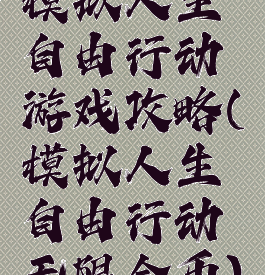 模拟人生
自由行动
游戏攻略(
模拟人生
自由行动
无限金币)